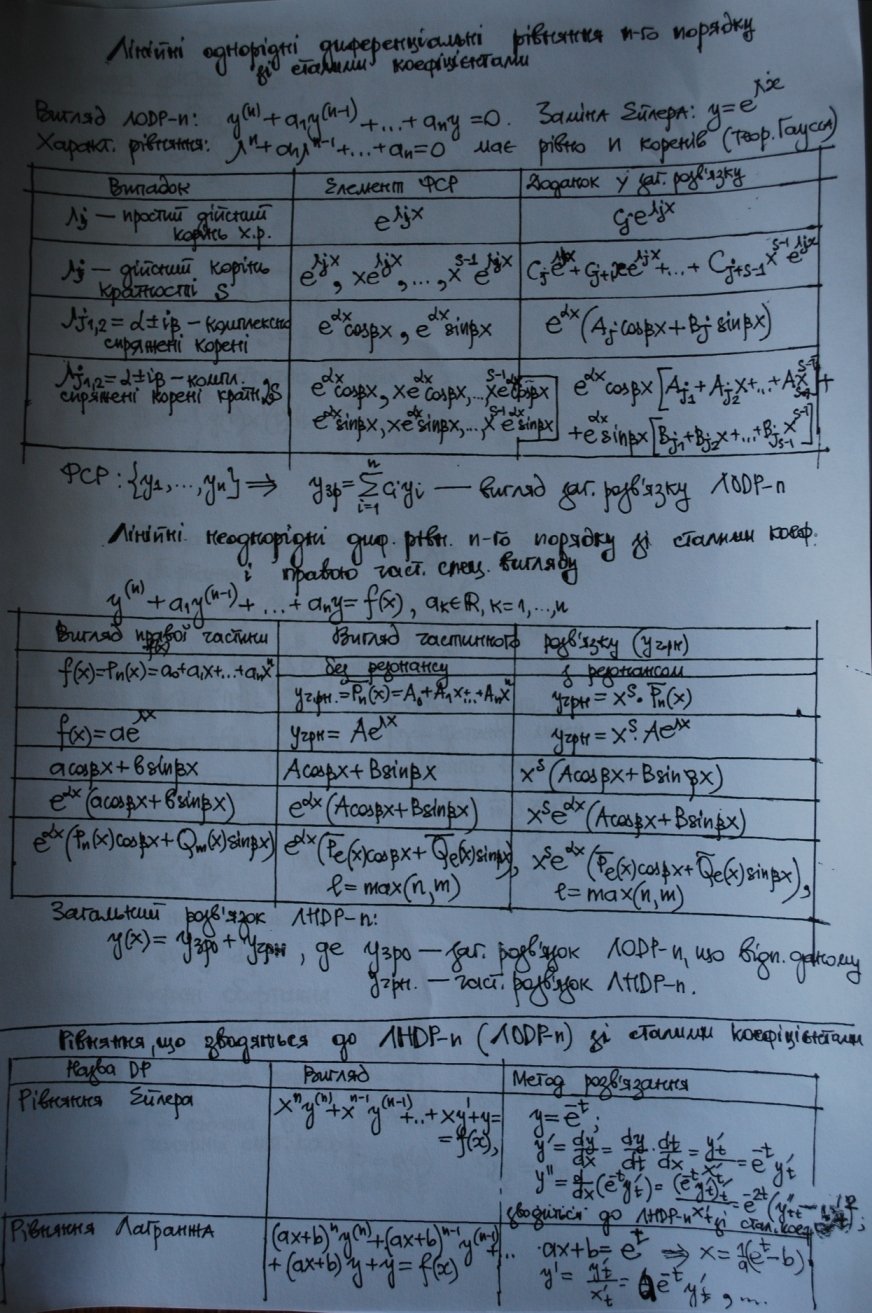 Лінійні однорідні диференціальні рівняння n-го порядку
зі сталими коефіцієнтами
Вигляд ЛОДР-n: y⁽ⁿ⁾ + a₁y⁽ⁿ⁻¹⁾ + ... + aₙy = 0. Заміна Ейлера: y = e^λx
Характ. рівняння: λⁿ + a₁λⁿ⁻¹ + ... + aₙ = 0 має рівно n коренів (теор. Гаусса)
Випадок | Елемент ФСР | Доданок у заг. розв'язку
λj — простий дійсний корінь х.р. | e^λjx | Cje^λjx
λj — дійсний корінь кратності S | e^λjx, xe^λjx, ..., x^(s-1)e^λjx | Cje^λjx + Cj+1xe^λjx + ... + Cj+s-1x^(s-1)e^λjx
λj1,2 = α ± iβ — комплексно спряжені корені | e^αx cosβx, e^αx sinβx | e^αx (Aj cosβx + Bj sinβx)
λj1,2 = α ± iβ — компл. спряжені корені кратн. S | e^αx cosβx, xe^αx cosβx, ..., x^(s-1)e^αx cosβx
e^αx sinβx, xe^αx sinβx, ..., x^(s-1)e^αx sinβx | e^αx cosβx [Aj1 + Aj2x + ... + Ajs-1x^(s-1)] +
+ e^αx sinβx [Bj1 + Bj2x + ... + Bjs-1x^(s-1)]
ФСР: {y₁, ..., yₙ} ⇒ yзр = Σ(i=1..n) Ciyi — вигляд заг. розв'язку ЛОДР-n
Лінійні неоднорідні диф. рівн. n-го порядку зі сталими коеф.
і правою част. спец. вигляду
y⁽ⁿ⁾ + a₁y⁽ⁿ⁻¹⁾ + ... + aₙy = f(x), aₖ∈ℝ, k = 1, ..., n
Вигляд правої частини f(x) | Вигляд частинного розв'язку (yчрн)
без резонансу | з резонансом
f(x) = Pₙ(x) = a₀ + a₁x + ... + aₙxⁿ | yчрн. = P̅ₙ(x) = A₀ + A₁x + ... + Aₙxⁿ | yчрн = x^s · P̅ₙ(x)
f(x) = ae^λx | yчрн = Ae^λx | yчрн = x^s · Ae^λx
acosβx + bsinβx | Acosβx + Bsinβx | x^s (Acosβx + Bsinβx)
e^αx (acosβx + bsinβx) | e^αx (Acosβx + Bsinβx) | x^s e^αx (Acosβx + Bsinβx)
e^αx (Pₙ(x)cosβx + Qₘ(x)sinβx) | e^αx (P̅ℓ(x)cosβx + Q̅ℓ(x)sinβx), ℓ = max(n,m) | x^s e^αx (P̅ℓ(x)cosβx + Q̅ℓ(x)sinβx), ℓ = max(n,m)
Загальний розв'язок ЛНДР-n:
y(x) = yзро + yчрн, де yзро — заг. розв'язок ЛОДР-n, що відп. даному
yчрн. — част. розв'язок ЛНДР-n.
Рівняння, що зводяться до ЛНДР-n (ЛОДР-n) зі сталими коефіцієнтами
Назва DP | Вигляд | Метод розв'язання
Рівняння Ейлера | xⁿy⁽ⁿ⁾ + xⁿ⁻¹y⁽ⁿ⁻¹⁾ + ... + xy' + y =
= f(x),
y = e^t;
y' = dy/dx = dy/dt · dt/dx = y't/x't = e^-t y't
y'' = d/dx (e^-t y't) = (e^-t y't)'t/x't = e^-2t (y''t -
зводиться до ЛНДР-n зі стал. коеф.
Рівняння Лагранжа | (ax+b)ⁿy⁽ⁿ⁾ + (ax+b)ⁿ⁻¹y⁽ⁿ⁻¹⁾ + ...
+ (ax+b)y + y = f(x)
· ax+b = e^t ⇒ x = 1/a(e^t - b)
y' = y't/x't = ae^-t y't, ...